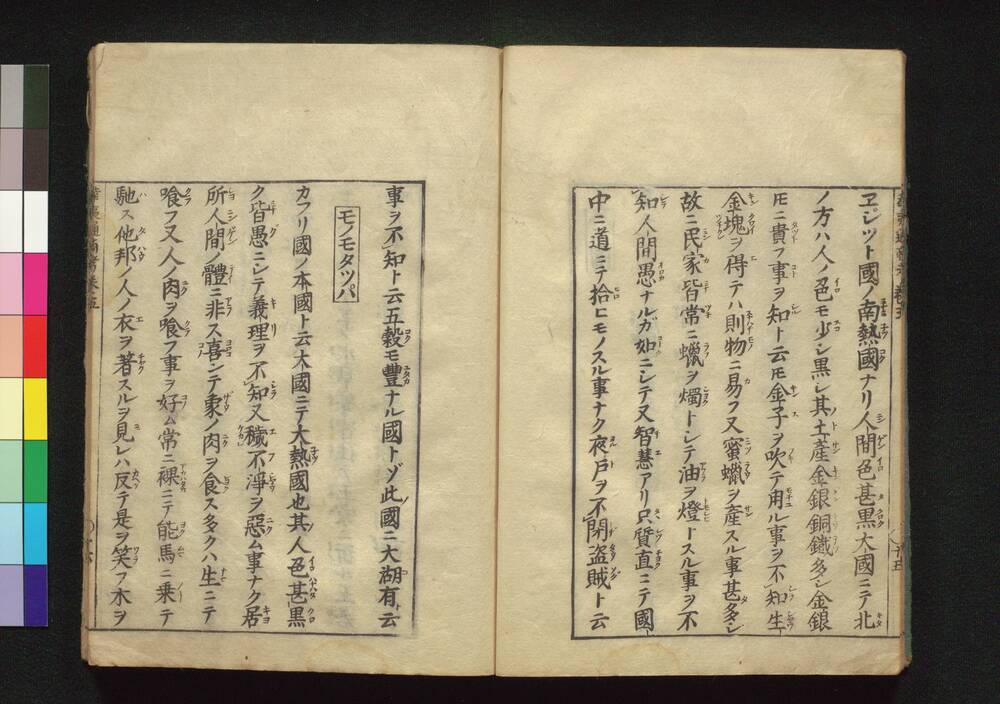 ヱジツト國ノ南熱國ナリ人間色甚黒大國ニテ北
ノ方ハ人ノ色モ少シ黒シ其土產金銀銅鐵多シ金銀
ㇳモニ貴フ事ヲ知ト云ㇳモ金子ヲ吹テ用ル事ヲ不知生
金塊ヲ得テハ則物ニ易フ又蜜蠟ヲ產スル事甚多シ
故ニ民家皆常ニ蠟ヲ燭トシテ油ヲ燈トスル事ヲ不
知人間愚ナルガ如ニシテ又智慧アリ只質直ニテ國
中ニ道ニテ拾ヒモノスル事ナク夜戸ヲ不閉盜賊ト云
事ヲ不知ト云五穀モ豐ナル國トゾ此國ニ大湖有ト云
モノモタツパ
カフリ國ノ本國ト云大國ニテ大熱國也其人色甚黒
ク皆愚ニシテ義理ヲ不知又穢不淨ヲ惡ム事ナク居
所人間ノ體ニ非ス喜ンテ象ノ肉ヲ食ス多クハ生ニテ
喰フ又人ノ肉ヲ喰フ事ヲ好ム常ニ裸ニテ能馬ニ乗テ
馳ス他邦ノ人ノ衣ヲ著スルヲ見レハ反テ是ヲ笑フ木ヲ